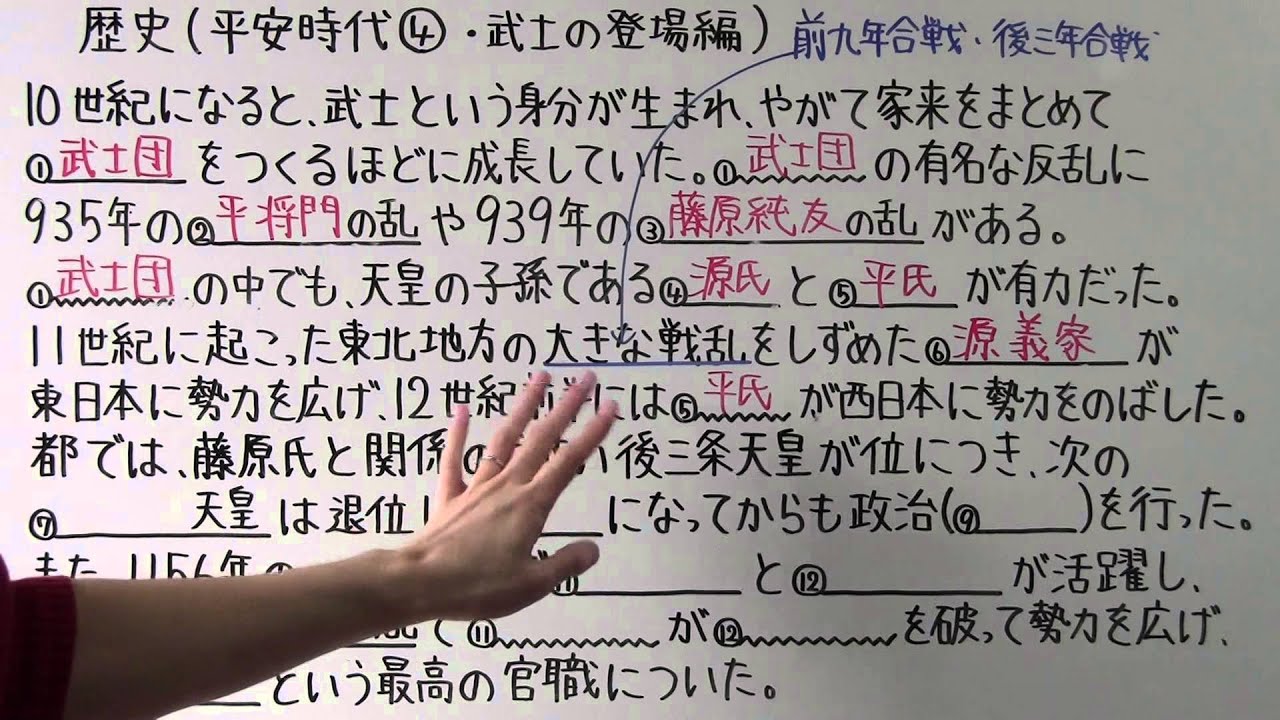 歴史(平安時代④・武士の登場編) 前九年合戦・後三年合戦
10世紀になると、武士という身分が生まれ、やがて家来をまとめて
①武士団をつくるほどに成長していた。①武士団の有名な反乱に
935年の②平将門の乱や939年の③藤原純友の乱がある。
①武士団の中でも、天皇の子孫である④源氏と⑤平氏が有力だった。
11世紀に起こった東北地方の大きな戦乱をしずめた⑥源義家が
東日本に勢力を広げ、12世紀には⑤平氏が西日本に勢力をのばした。
都では、藤原氏と関係のい後三条天皇が位につき、次の
⑦天皇は退位しになってからも政治(⑨)を行った。
また、1156年の⑪と⑫が活躍し、
乱で⑪が⑫を破って勢力を広げ、
という最高の官職についた。